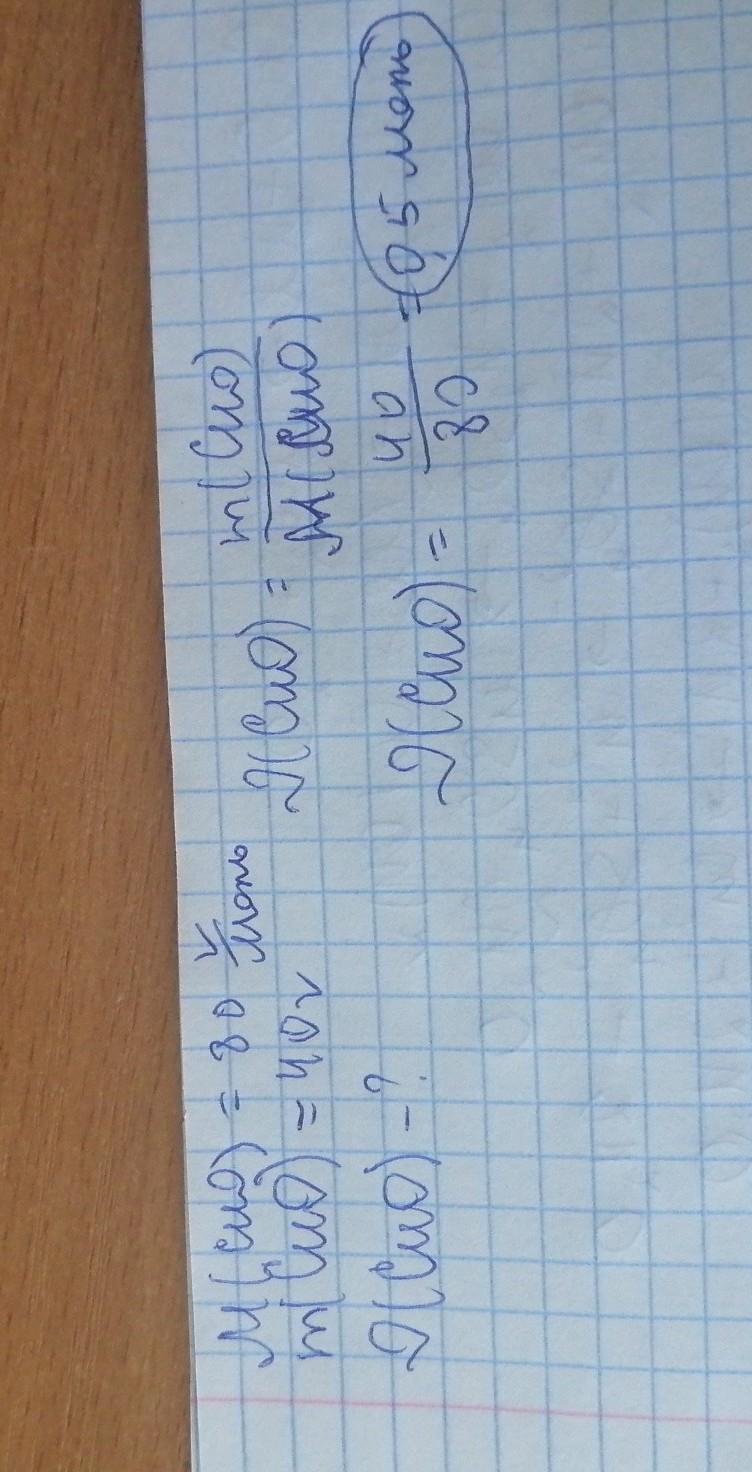 M(CuO) = 80 г/моль
m(CuO) = 40г
ν(CuO) - ?
ν(CuO) = m(CuO)/M(CuO)
ν(CuO) = 40/80 = 0,5 моль